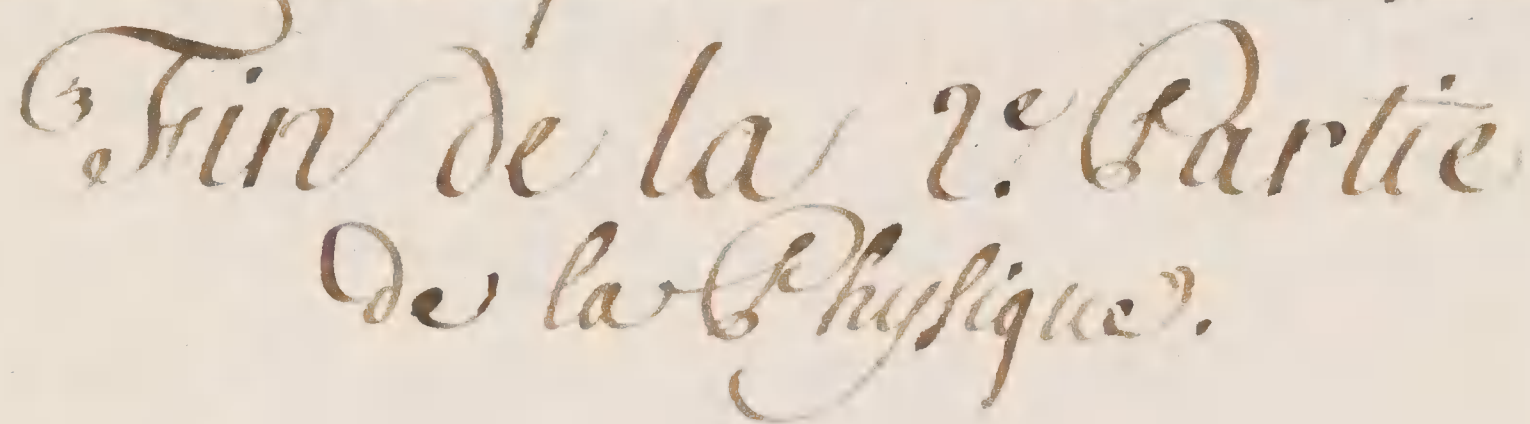 Fin de la 2.e Partie
de la Phyſique.